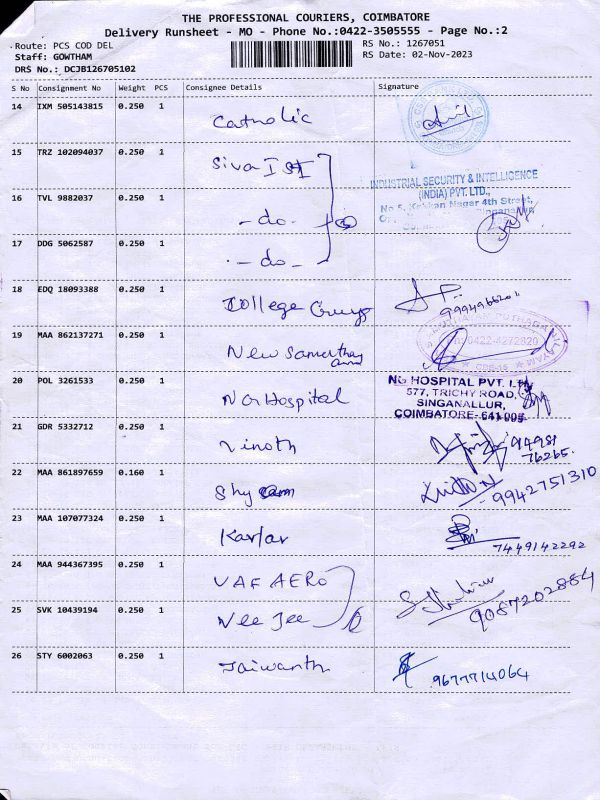 THE PROFESSIONAL COURIERS, COIMBATORE
Delivery Runsheet - MO - Phone No.:0422-3505555 - Page No.:2
Route: PCS COD DEL
RS No.: 1267051
Staff: GOWTHAM
RS Date: 02-Nov-2023
DRS No.: DCJB126705102
S No Consignment No Weight PCS Consignee Details Signature
14 IXM 505143815 0.250 1 Catholic
15 TRZ 102094037 0.250 1 Siva
INDUSTRIAL SECURITY & INTELLIGENCE
(INDIA) PVT. LTD.,
No 5, Kakkan Nagar 4th Street,
16 TVL 9882037 0.250 1 -do-
17 DDG 5062587 0.250 1 -do-
18 EDQ 18093388 0.250 1 College
19 MAA 862137271 0.250 1 New
0422-4272820
20 POL 3261533 0.250 1 NG Hospital
NG HOSPITAL PVT. LTD
577, TRICHY ROAD,
SINGANALLUR,
COIMBATORE-641005
21 GDR 5332712 0.250 1 Vinoth 94981
76265.
22 MAA 861897659 0.160 1 Shy - 9942751310
23 MAA 107077324 0.250 1 7449142292
24 MAA 944367395 0.250 1 VAF AERO
9087202884
25 SVK 10439194 0.250 1 Vee Jee
26 STY 6002063 0.250 1 Jaiwanth 9677714064